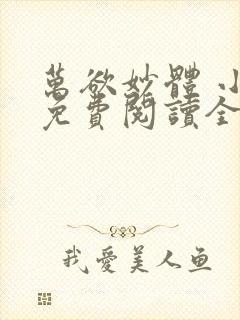 萬欲妙體 小
免費閱讀全
我愛美人鱼